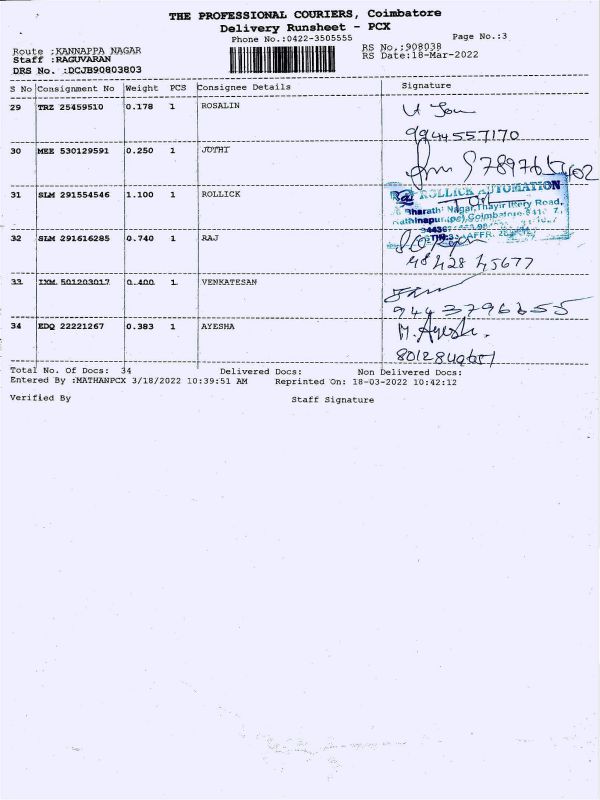 THE PROFESSIONAL COURIERS, Coimbatore
Delivery Runsheet - PCX
Phone No.:0422-3505555 Page No.:3
Route :KANNAPPA NAGAR RS No.:908038
Staff :RAGUVARAN RS Date:18-Mar-2022
DRS No. :DCJB90803803
S No Consignment No Weight PCS Consignee Details Signature
29 TRZ 25459510 0.178 1 ROSALIN
9944557170
30 MEE 530129591 0.250 1 JOTHI
31 SLM 291554546 1.100 1 ROLLICK
ROLLICK AUTOMATION
Bharathi Nagar, Thayir Ittery Road,
32 SLM 291616285 0.740 1 RAJ
33 IXM 501203017 0.400 1 VENKATESAN
9443796655
34 EDQ 22221267 0.383 1 AYESHA
M. Ayesha.
Total No. Of Docs: 34 Delivered Docs: Non Delivered Docs:
Entered By :MATHANPCX 3/18/2022 10:39:51 AM Reprinted On: 18-03-2022 10:42:12
Verified By Staff Signature